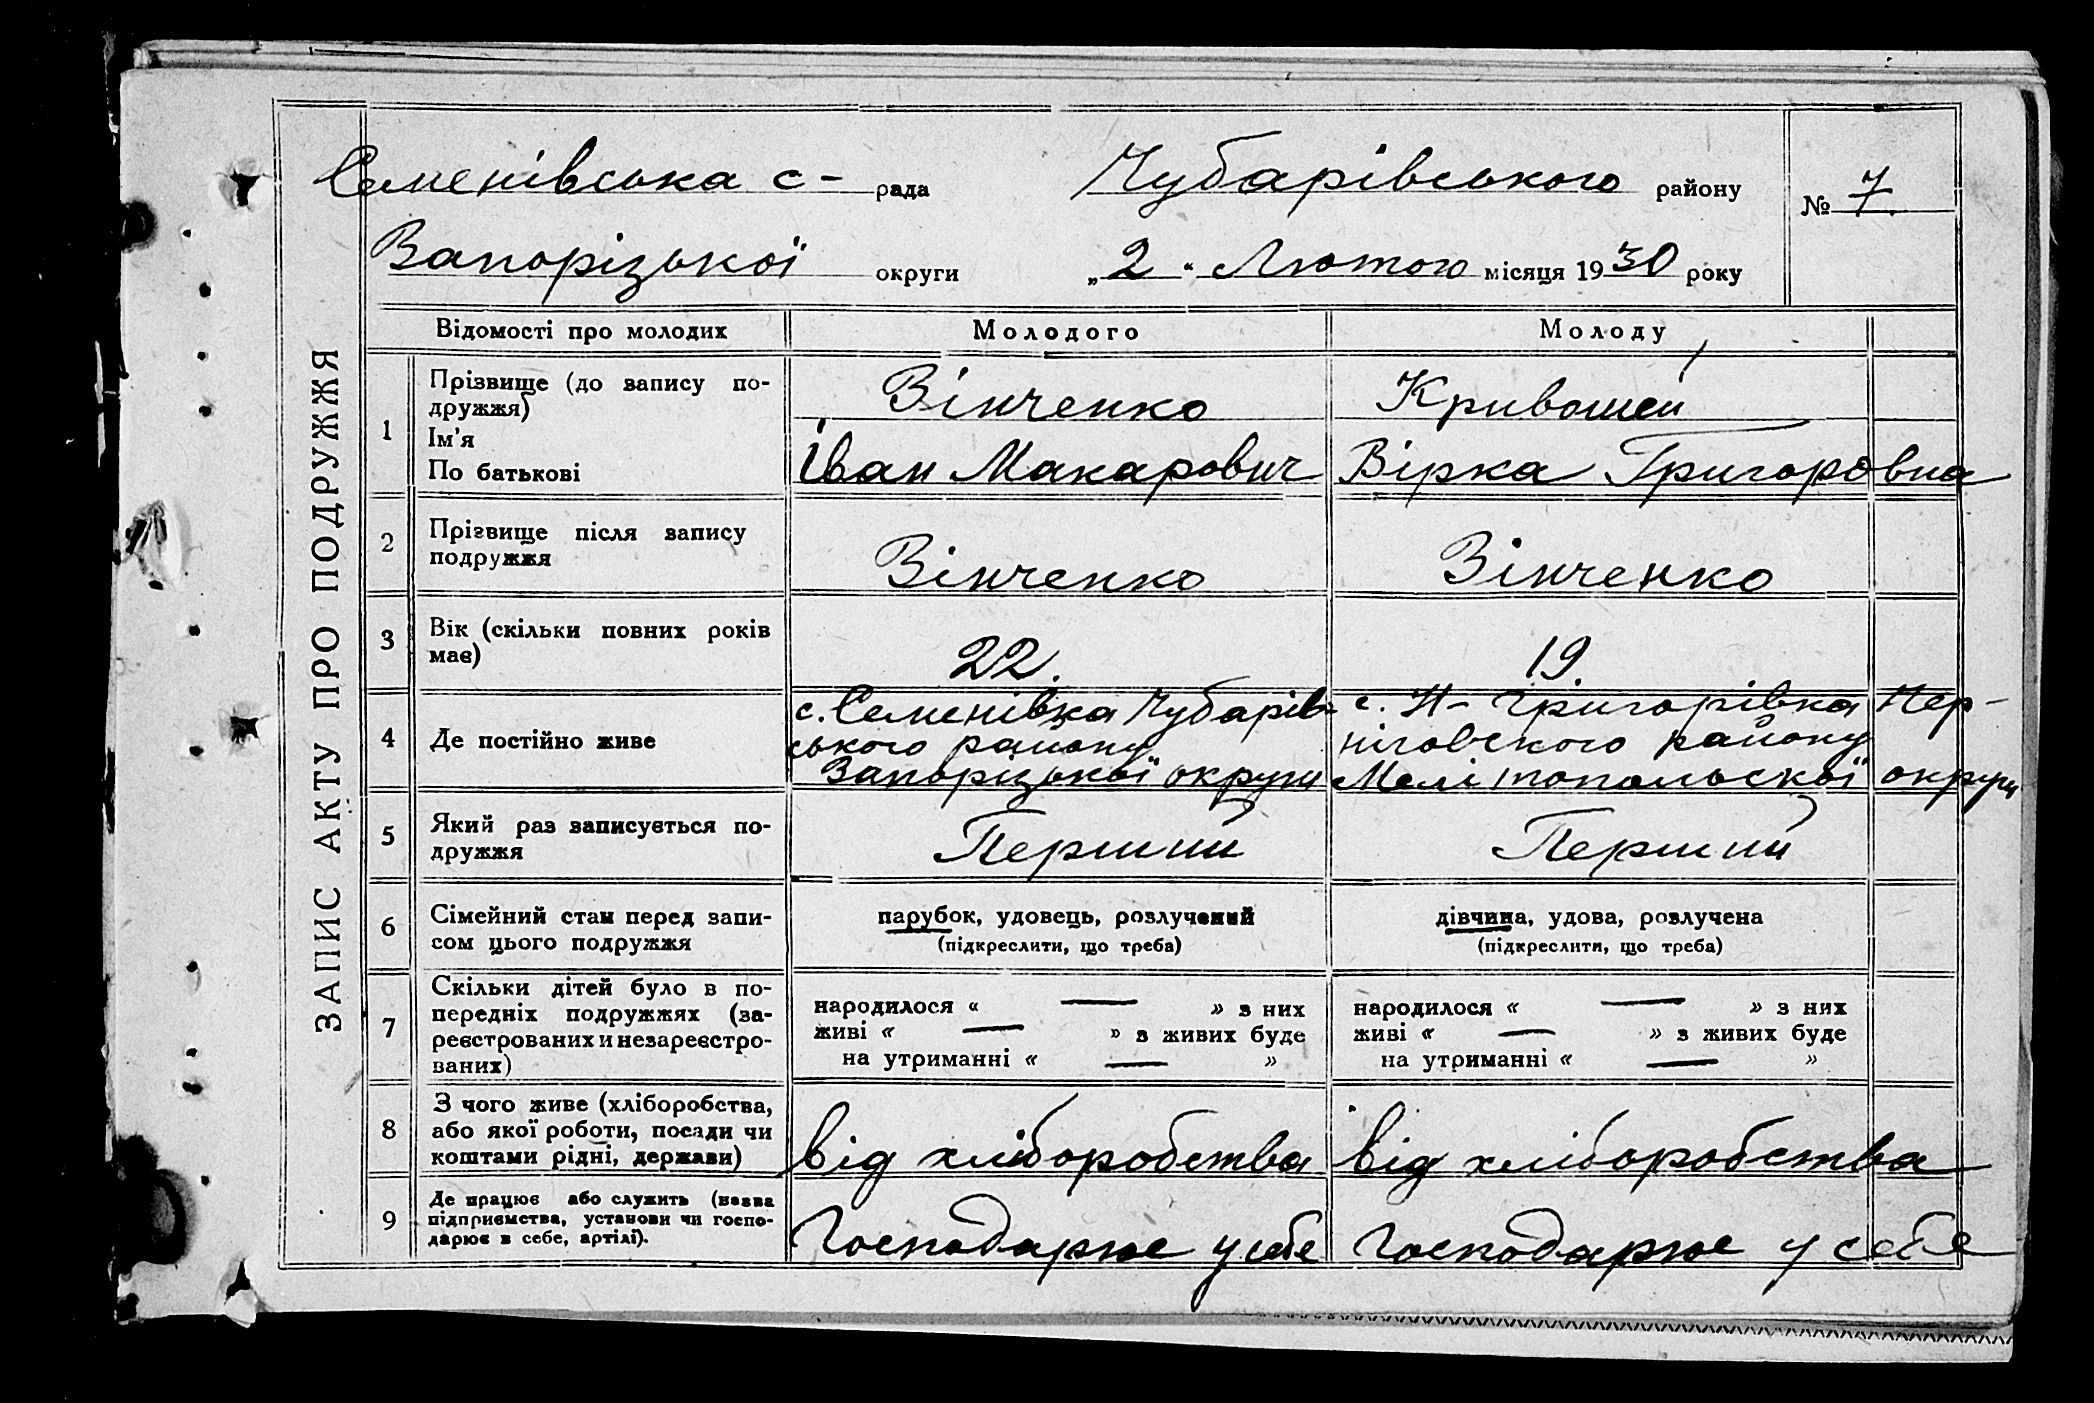 Семенівська с- рада Чубарівського району № 7
Запорізької округи „2“ Лютого місяця 1930 року
ЗАПИС АКТУ ПРО ПОДРУЖЖЯ
Відомості про молодих Молодого Молоду
1 Прізвище (до запису по-
дружжя) Зінченко Кривошей
Ім'я
По батькові Іван Макарович Вірка Григоровна
2 Прізвище після запису
подружжя Зінченко Зінченко
3 Вік (скільки повних років
має) 22. 19.
4 Де постійно живе
с. Семенівка Чубарів- с. Н-Григорівка Чер-
ського району ніговского району
Запорізької округи Мелітопольскої округи
5 Який раз записується по-
дружжя Перший Перший
6 Сімейний стан перед запи-
сом цього подружжя
парубок, удовець, розлучений дівчина, удова, розлучена
(підкреслити, що треба) (підкреслити, що треба)
7 Скільки дітей було в по-
передніх подружжях (за-
реєстрованих и незареєстро-
ваних)
народилося « — » з них народилося « — » з них
живі « — » з живих буде живі « — » з живих буде
на утриманні « — » на утриманні « — »
8 З чого живе (хліборобства,
або якої роботи, посади чи
коштами рідні, держави) від хліборобства від хліборобства
9 Де працює або служить (назва
підприємства, установи чи госпо-
дарює в себе, артілі). Господарює у себе Господарює у себе